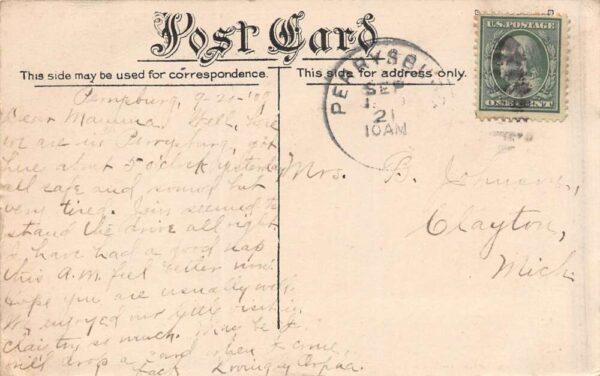 Post Card
This side may be used for correspondence.
This side for address only.
U.S. POSTAGE
ONE CENT
PERRYSBURG
SEP
21
10AM
Perrysburg, 9-21-'09
Dear Mamma. Well, here
we are in Perrysburg, got
here about 5 o'clock yesterday
all safe and sound but
very tired. seemed to
stand the drive all right
have had a good nap
this A.M. feel better now.
Hope you are usually well.
We enjoyed our visiting
so much. May be I
will drop a card when I come
back Lovingly
Mrs. B. Johnson,
Clayton,
Mich.